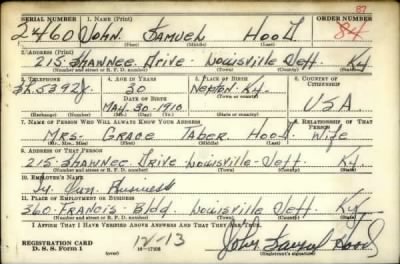 87
SERIAL NUMBER 1. NAME (Print) ORDER NUMBER
2460 John Samuel Hood 84
(First) (Middle) (Last)
2. ADDRESS (Print)
215 Shawnee Drive Louisville Jeff Ky
(Number and street or R. F. D. number) (Town) (County) (State)
3. TELEPHONE 4. AGE IN YEARS 5. PLACE OF BIRTH 6. COUNTRY OF CITIZENSHIP
30 Ky.
DATE OF BIRTH
May 30 1910 USA
(Exchange) (Number) (Mo.) (Day) (Yr.) (State or country)
7. NAME OF PERSON WHO WILL ALWAYS KNOW YOUR ADDRESS 8. RELATIONSHIP OF THAT PERSON
Mrs. Grace Taber Hood Wife
(Mr., Mrs., Miss) (First) (Middle) (Last)
9. ADDRESS OF THAT PERSON
215 Shawnee Drive Louisville Jeff. Ky.
(Number and street or R. F. D. number) (Town) (County) (State)
10. EMPLOYER'S NAME
Own Business
11. PLACE OF EMPLOYMENT OR BUSINESS
360 Francis Bldg. Louisville Jeff Ky.
(Number and street or R. F. D. number) (Town) (County) (State)
I AFFIRM THAT I HAVE VERIFIED ABOVE ANSWERS AND THAT THEY ARE TRUE.
REGISTRATION CARD 12-13 John Samuel Hood
D. S. S. FORM 1 (Registrant's signature)